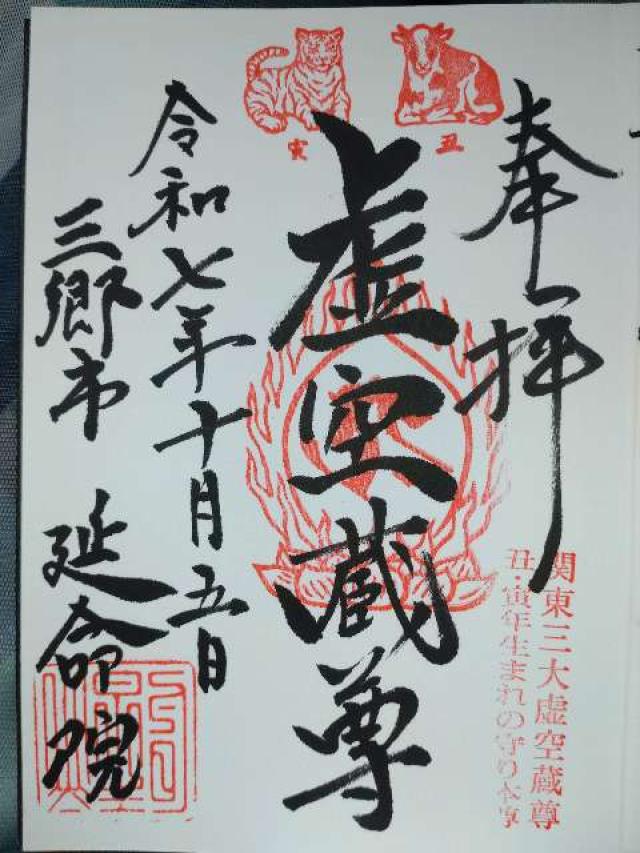 奉拝
関東三大虚空蔵尊
丑・寅年生まれの守り本尊
丑
寅
虚空蔵尊
令和七年十月五日
三郷市 延命院